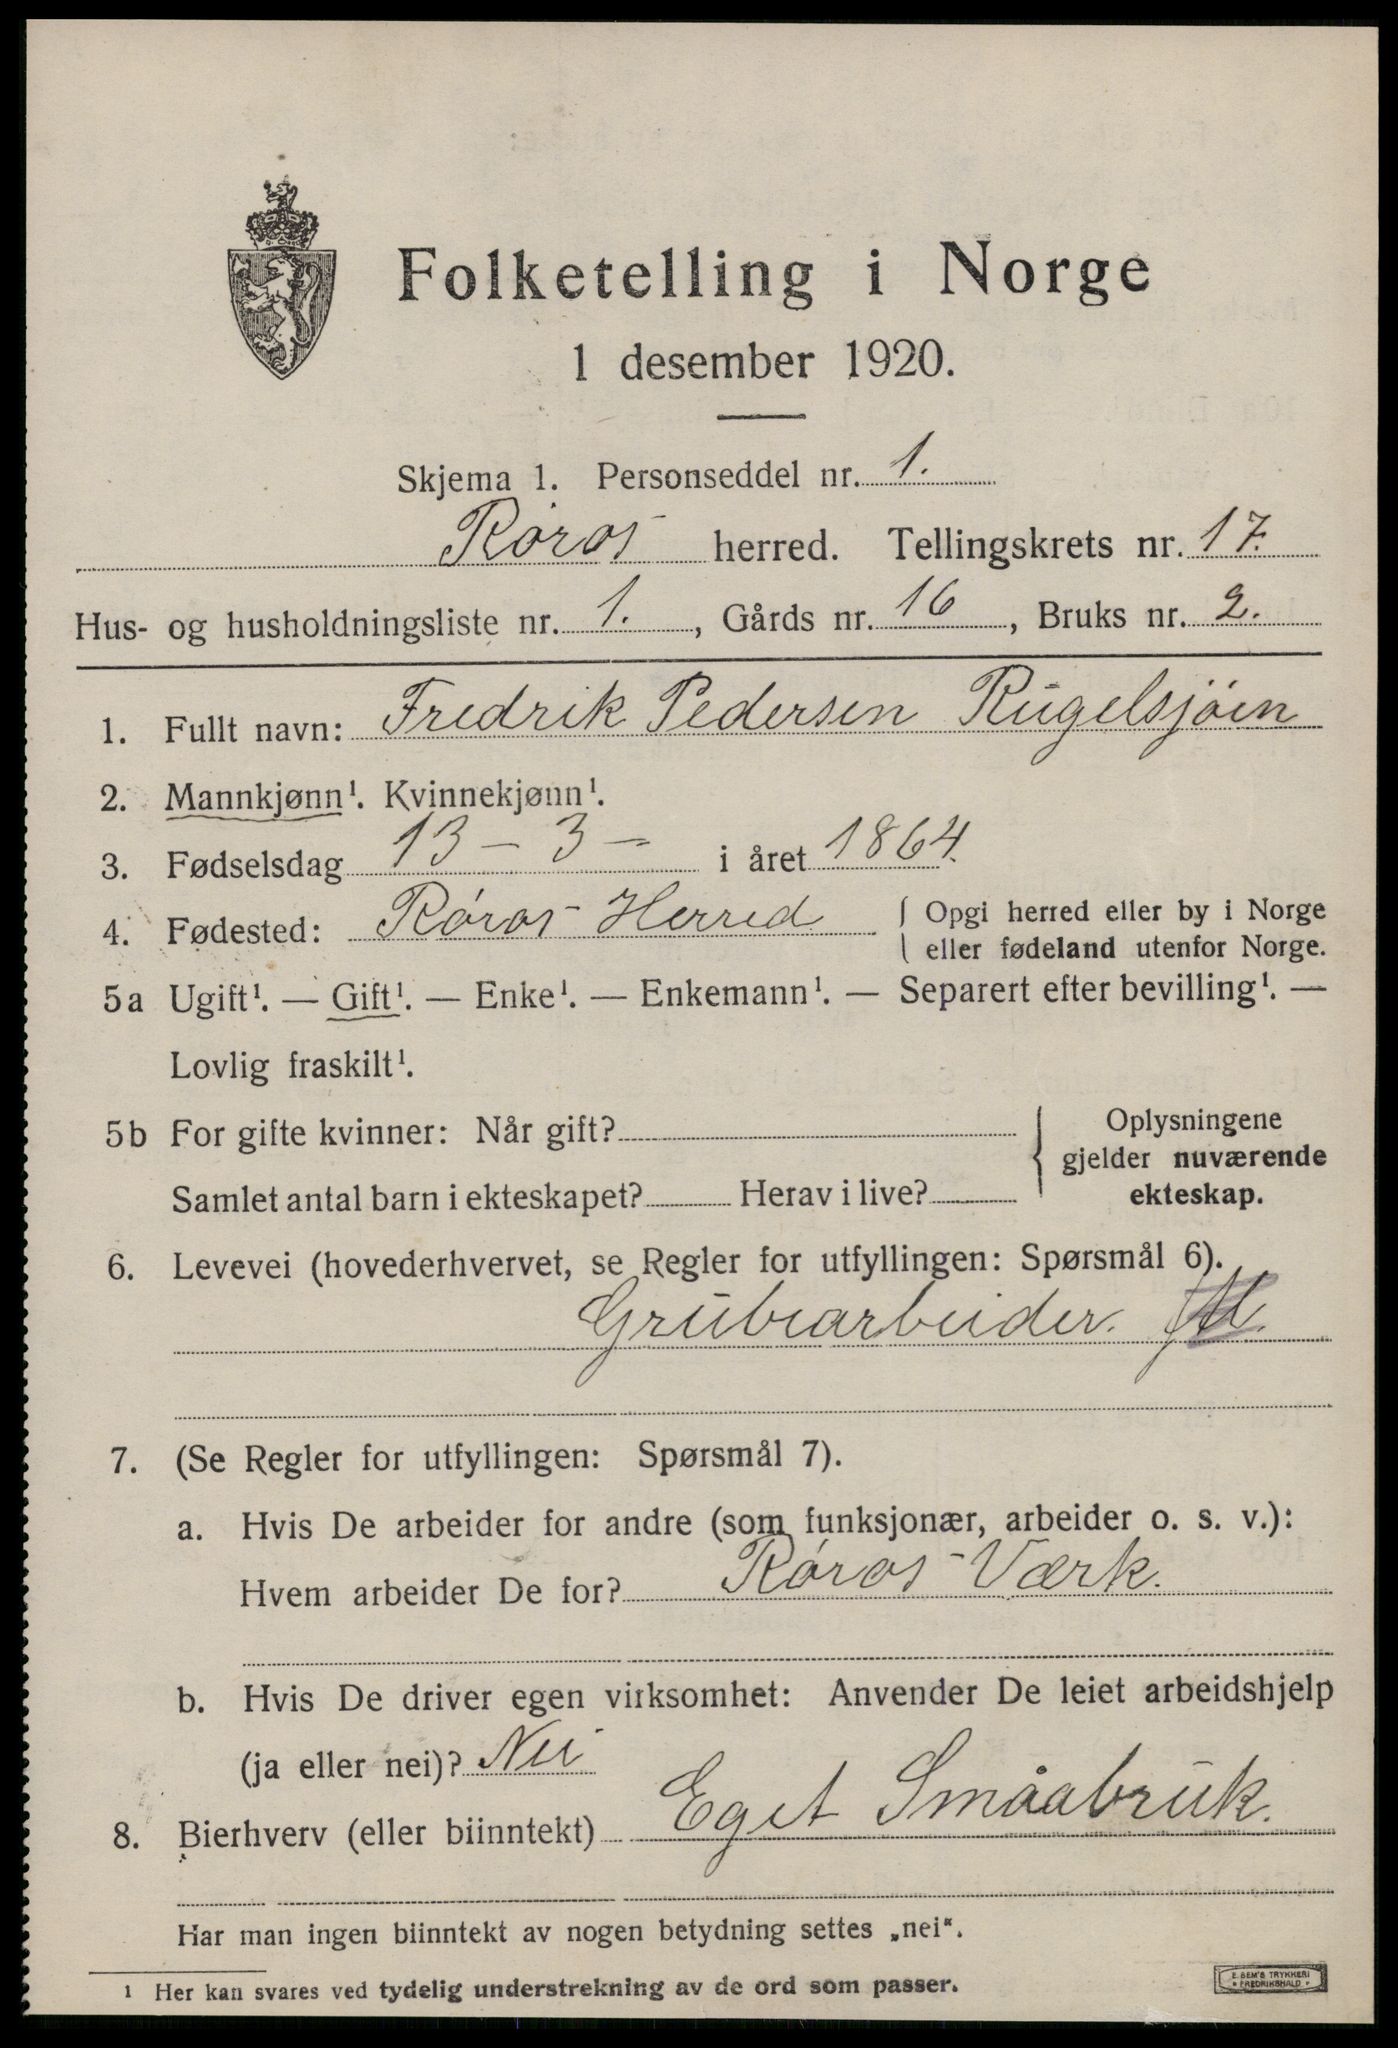 Folketelling i Norge
1 desember 1920.
Skjema 1. Personseddel nr. 1.
Røros herred. Tellingskrets nr. 17.
Hus- og husholdningsliste nr. 1., Gårds nr. 16, Bruks nr. 2.
1. Fullt navn: Fredrik Pedersen Rugelsjøen
2. Mannkjønn¹. Kvinnekjønn¹.
3. Fødselsdag 13 - 3 - i året 1864.
4. Fødested: Røros Herred { Opgi herred eller by i Norge
eller fødeland utenfor Norge.
5a Ugift¹. — Gift¹. — Enke¹. — Enkemann¹. — Separert efter bevilling¹. —
Lovlig fraskilt¹.
5b For gifte kvinner: Når gift? } Oplysningene
gjelder nuværende
Samlet antal barn i ekteskapet? Herav i live? ekteskap.
6. Levevei (hovederhvervet, se Regler for utfyllingen: Spørsmål 6).
Grubearbeider.
7. (Se Regler for utfyllingen: Spørsmål 7).
a. Hvis De arbeider for andre (som funksjonær, arbeider o. s. v.):
Hvem arbeider De for? Røros Værk.
b. Hvis De driver egen virksomhet: Anvender De leiet arbeidshjelp
(ja eller nei)? Nei
8. Bierhverv (eller biinntekt) Eget Småabruk.
Har man ingen biinntekt av nogen betydning settes „nei“.
¹ Her kan svares ved tydelig understrekning av de ord som passer.
E. SEM'S TRYKKERI
FREDRIKSHALD